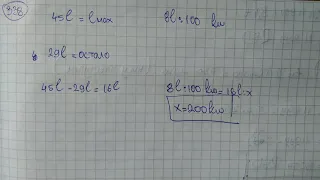 45l = lmax 8l = 100 km
29l = ostalo
45l - 29l = 16l 8l : 100 km = 16l : x
x = 200 km